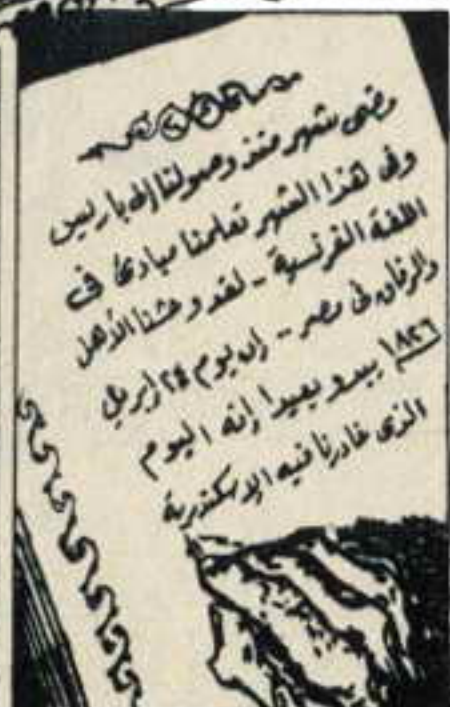 مضى شهر منذ وصولنا إلى باريس
وفى هذا الشهر تعلمنا مبادئ فى
اللغة الفرنسية - لقد وحشنا الأهل
والرفاق فى مصر - إن يوم ٢٤ إبريل
١٨٢٦ يبدو بعيدا إنه اليوم
الذى غادرنا فيه الإسكندرية